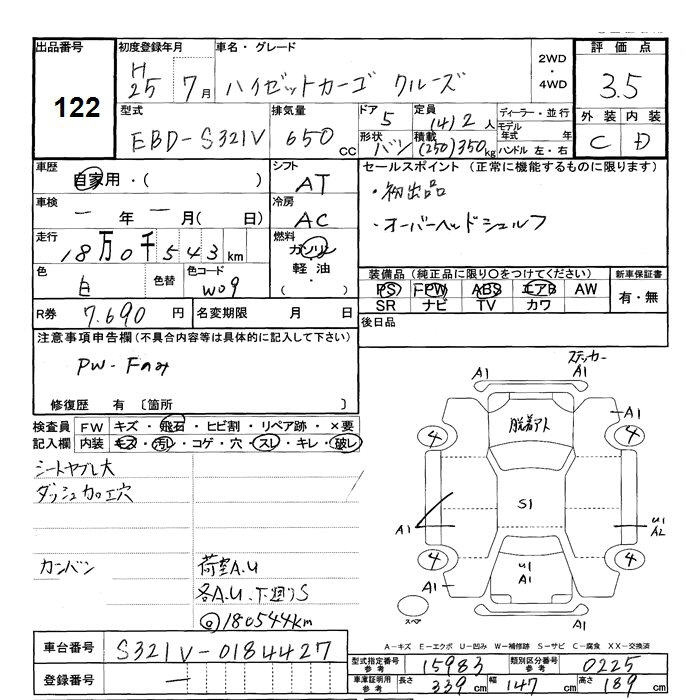 出品番号 初度登録年月 車名・グレード 評価点
122
H25 7月 ハイゼットカーゴ クルーズ 2WD・4WD 3.5
型式 排気量 ドア 定員 ディーラー・並行 外装 内装
EBD-S321V 650cc 5 (4)2人 モデル年式 年 C D
形状 バン 積載 (250)350kg ハンドル 左・右
車歴 シフト セールスポイント (正常に機能するものに限ります)
自家用・( ) AT ・初出品
車検 冷房
ー年ー月(日) AC ・オーバーヘッドシェルフ
走行 燃料
18万0千543km ガソリン・軽油・( )
色 色替 色コード 装備品(純正品に限り○をつけてください) 新車保証書
白 W09 PS FPW ABS エアB AW 有・無
SR ナビ TV カワ
R券 7.690円 名変期限 月 日 後日品
注意事項申告欄(不具合内容等は具体的に記入して下さい)
PW-Fのみ
修復歴 有〔箇所 〕
検査員記入欄 FW キズ・飛石・ヒビ割・リペア跡・×要
内装 キズ・汚レ・コゲ・穴・スレ・キレ・破レ
シートヤブレ大
ダッシュ加工穴
カンバン 荷室A.U
各A.U.下廻りS
@180544km
ステッカー
A1 A1
脱着アト
A1
4 4
S1
A1 U1 A2
4 4
U1 A1
A1
A1
スペア
A1
A-キズ E-エクボ U-凹み W-補修跡 S-サビ C-腐食 XX-交換済
車台番号 S321V-0184427
登録番号 ー
型式指定番号 参考 15983 類別区分番号 参考 0225
車庫証明用 参考 長さ 339cm 幅 147cm 高さ 189cm